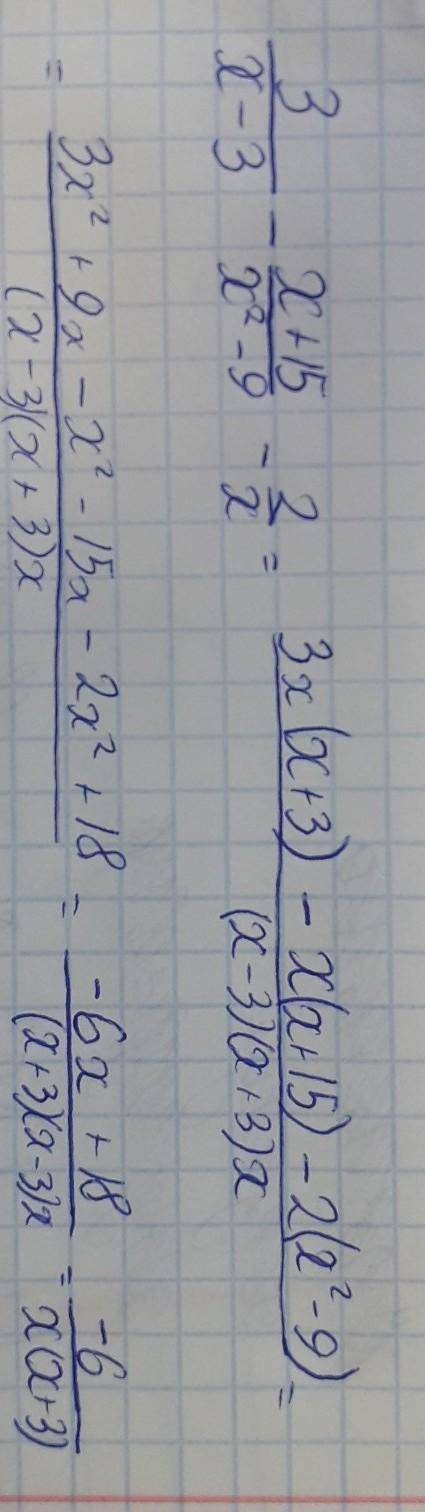 3/(x-3) - (x+15)/(x²-9) - 2/x = (3x(x+3) - x(x+15) - 2(x²-9))/((x-3)(x+3)x) =
= (3x² + 9x - x² - 15x - 2x² + 18)/((x-3)(x+3)x) = (-6x + 18)/((x+3)(x-3)x) = -6/(x(x+3))